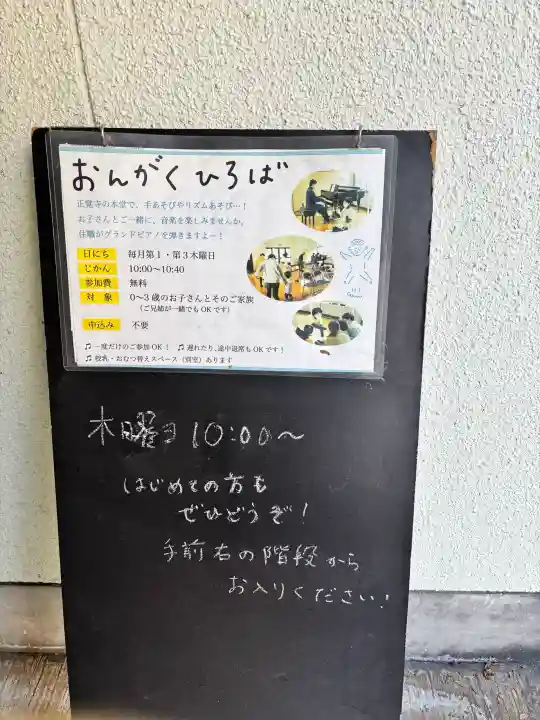 おんがくひろば
正覚寺の本堂で、手あそびやリズムあそび…！
お子さんとご一緒に、音楽を楽しみませんか。
住職がグランドピアノを弾きますよー！
日にち 毎月第1・第3木曜日
じかん 10:00～10:40
参加費 無料
対 象 0～3歳のお子さんとそのご家族
（ご兄姉が一緒でもOKです）
申込み 不要
♫ 一度だけのご参加OK！ ♫ 遅れたり、途中退席もOKです！
♫ 授乳・おむつ替えスペース（別室）あります
木曜日10:00～
はじめての方も
ぜひどうぞ！
手前右の階段から
お入りください！